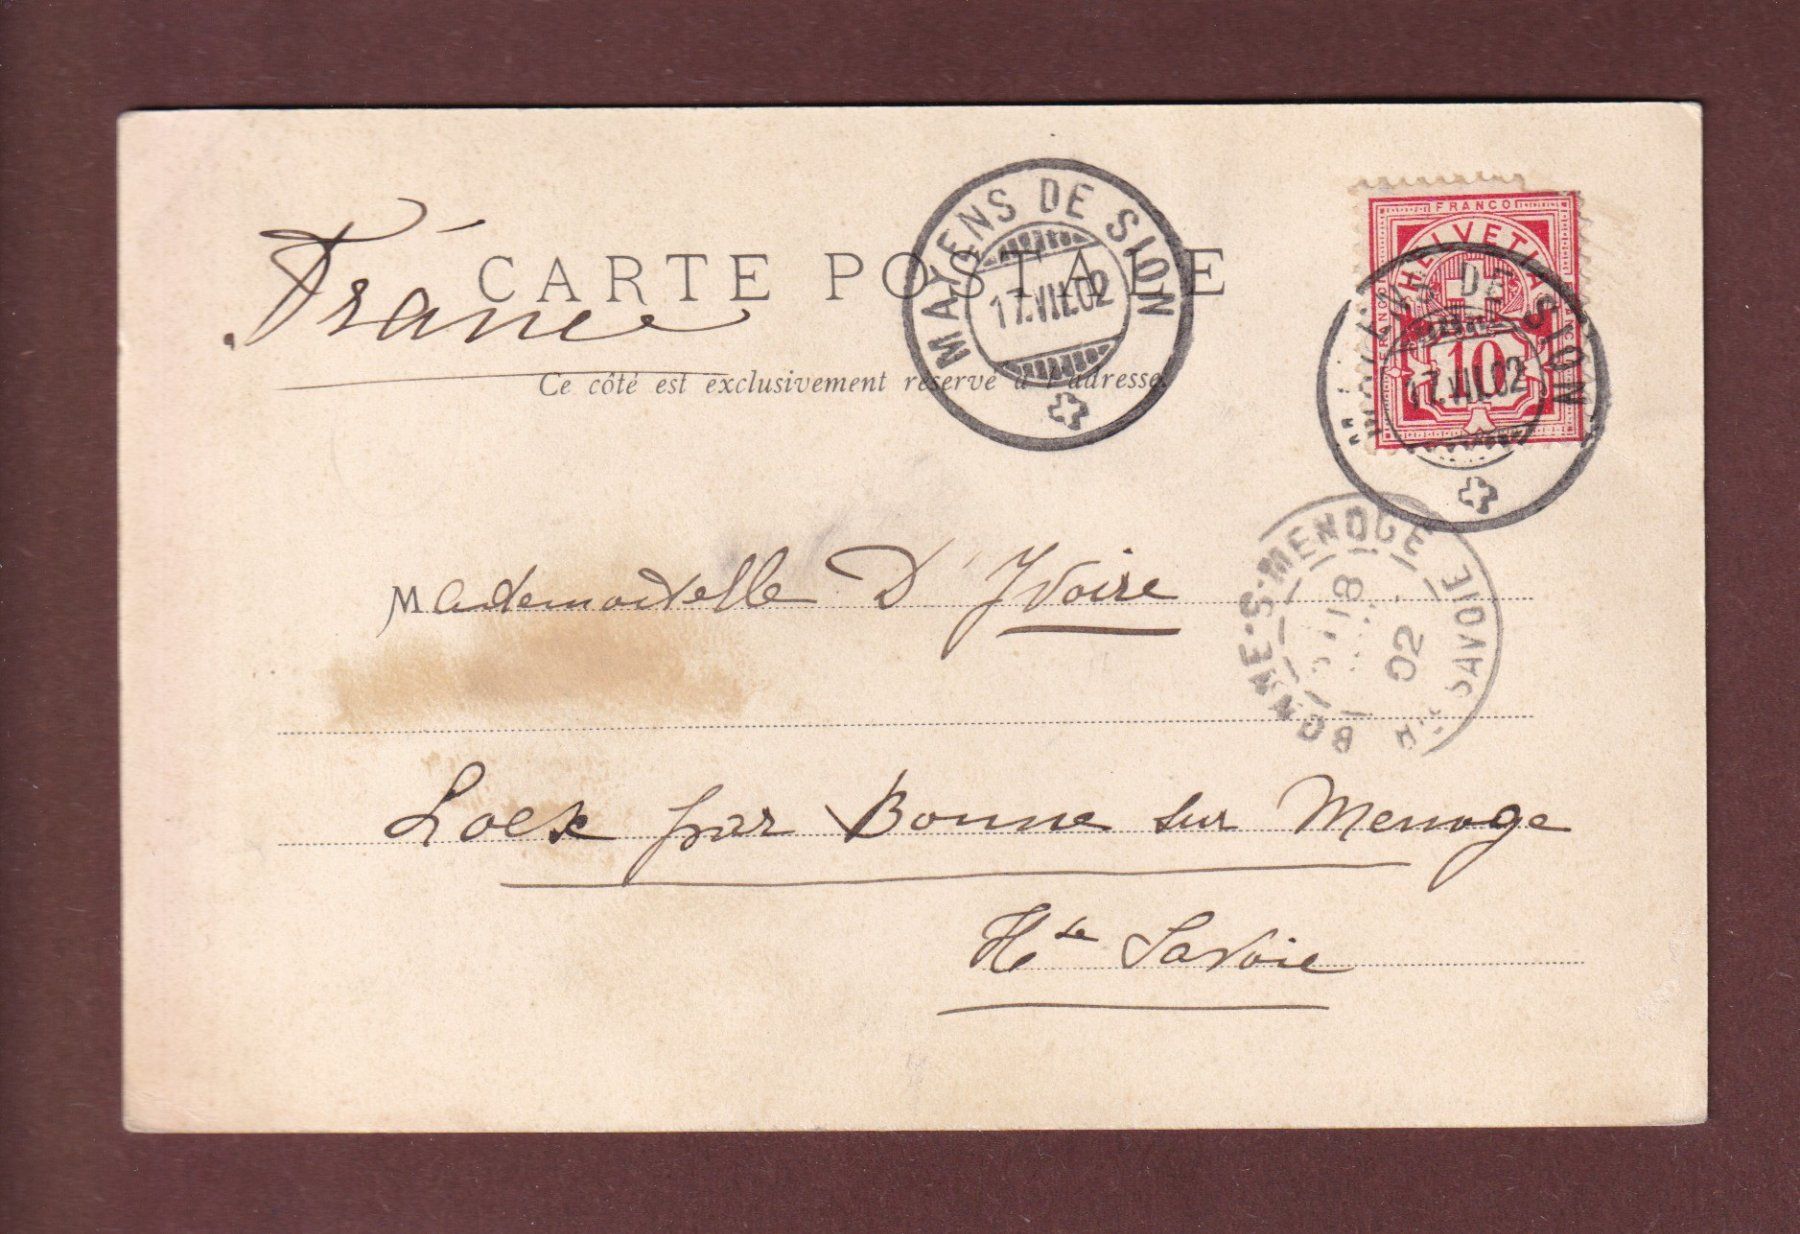 France
CARTE POSTALE
Ce côté est exclusivement réservé à l'adresse.
MAYENS DE SION
17.VII.02
FRANCO
HELVETIA
FRANCO
10
DE SION
17.VII.02
BONNE-S-MENOGE
18
02
Hte SAVOIE
Mademoiselle D'Yvoire
Loex par Bonne sur Menoge
Hte Savoie